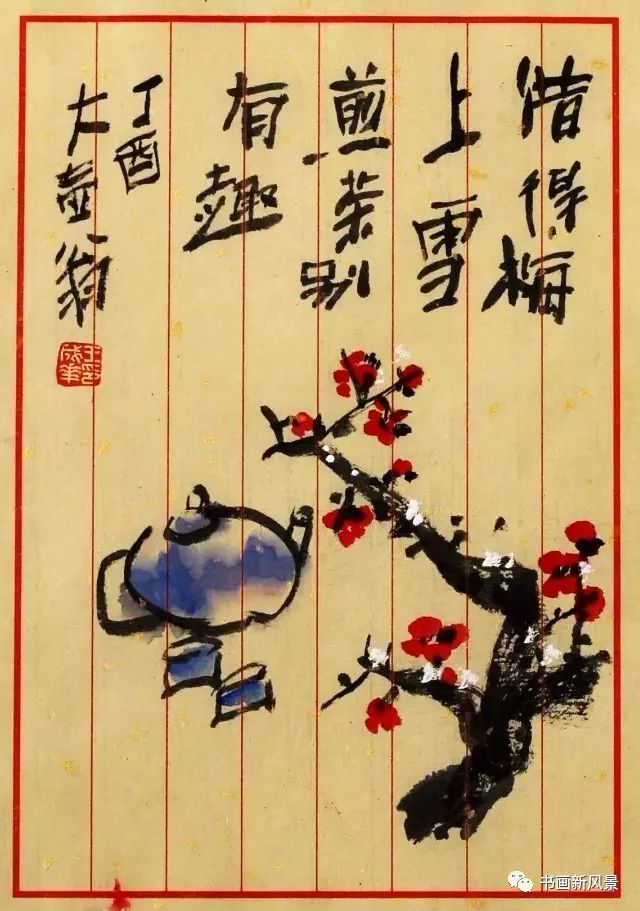 借得梅
上雪
煎茶别
有趣
丁酉
大壶翁
书画新风景